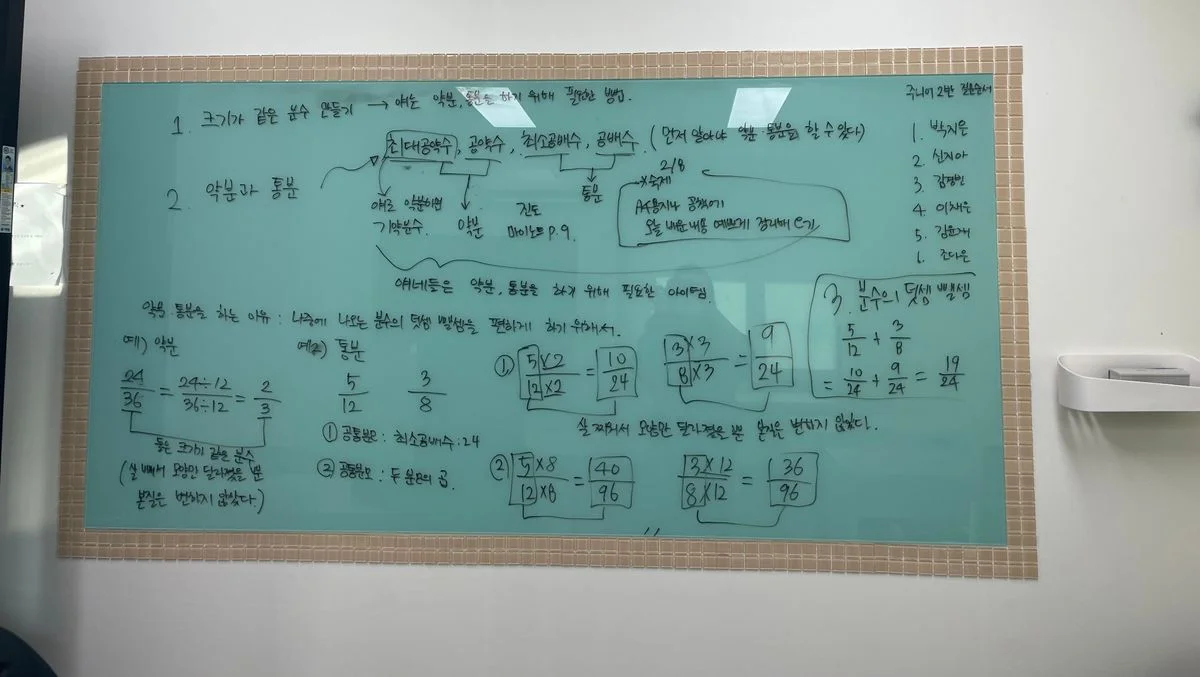 1. 크기가 같은 분수 만들기 → 얘는 약분, 통분을 하기 위해 필요한 방법.
최대공약수, 공약수, 최소공배수, 공배수. (먼저 알아야 약분·통분을 할 수 있다)
2. 약분과 통분
얘로 약분하면
기약분수.
약분
통분
진도
마이노트 P.9.
2/8
*숙제
A4용지나 공책에
오늘 배운 내용 예쁘게 정리해 오기
얘네들은 약분, 통분을 하기 위해 필요한 아이템.
주니어 2반 질문순서
1. 박지은
2. 신지아
3.
4. 이채은
5.
6. 조다은
약분·통분을 하는 이유 : 나중에 나오는 분수의 덧셈 뺄셈을 편하게 하기 위해서.
예) 약분
24/36 = 24÷12/36÷12 = 2/3
둘은 크기가 같은 분수
(살 빼서 모양만 달라졌을 뿐
본질은 변하지 않았다.)
예2) 통분
5/12 3/8
① 공통분모 : 최소공배수 : 24
② 공통분모 : 두 분모의 곱.
① 5×2/12×2 = 10/24 3×3/8×3 = 9/24
살 찌워서 모양만 달라졌을 뿐 본질은 변하지 않았다.
② 5×8/12×8 = 40/96 3×12/8×12 = 36/96
3. 분수의 덧셈 뺄셈
5/12 + 3/8
= 10/24 + 9/24 = 19/24